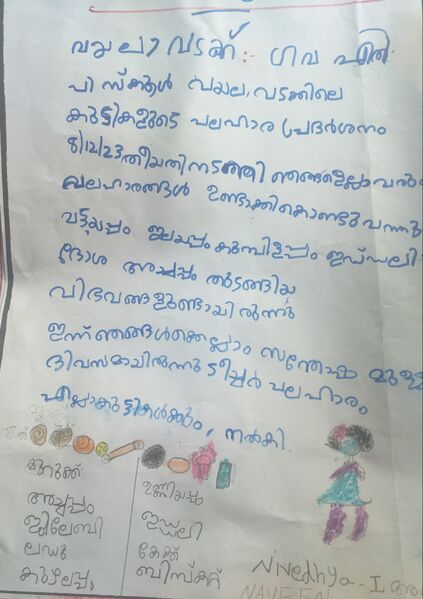 വയലാ വടക്ക് :- ഗവ എൽ
പി സ്കൂൾ വയല, വടക്കിലെ
കുട്ടികളുടെ പലഹാര പ്രദർശനം
8/12/23 തീയതി നടത്തി ഞങ്ങളെല്ലാവരും
പലഹാരങ്ങൾ ഉണ്ടാക്കികൊണ്ടു വന്നു
വട്ടയപ്പം ഇലയപ്പം കുമ്പിളപ്പം ഇഡ്ഡലി
ദോശ അച്ചപ്പം തുടങ്ങിയ
വിഭവങ്ങളുണ്ടായിരുന്നു
ഇന്ന് ഞങ്ങൾക്കെല്ലാം സന്തോഷമുള്ള
ദിവസമായിരുന്നു ടീച്ചർ പലഹാരം
എല്ലാകുട്ടികൾക്കും, നൽകി.
മുറുക്ക്
അച്ചപ്പം
ജിലേബി
ലഡു
കുഴലപ്പം
ഉണ്ണിയപ്പം
ഇഡ്ഡലി
കേക്ക്
ബിസ്കറ്റ്
Nivedhya - I
NAVEEN